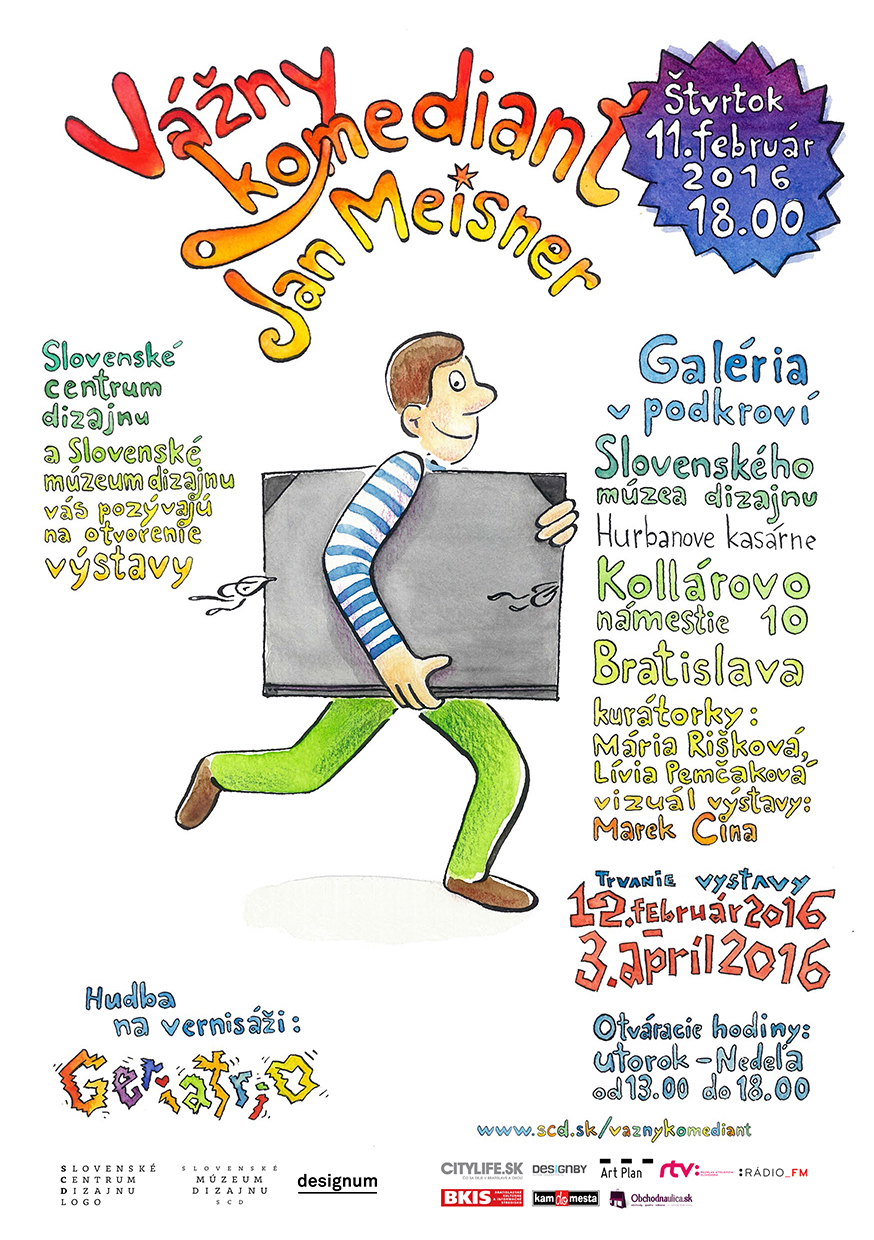 Vážny
komediant
Jan Meisner
Štvrtok
11.február
2016
18.00
Slovenské
centrum
dizajnu
a Slovenské
múzeum dizajnu
vás pozývajú
na otvorenie
výstavy
Galéria
v podkroví
Slovenského
múzea dizajnu
Hurbanove kasárne
Kollárovo
námestie 10
Bratislava
kurátorky:
Mária Rišková,
Lívia Pemčaková
vizuál výstavy:
Marek Cina
Trvanie výstavy
12.február 2016
–
3.apríl 2016
Hudba
na vernisáži:
Geriatrio
Otváracie hodiny:
utorok – Nedeľa
od 13.00 do 18.00
www.scd.sk/vaznykomediant
SLOVENSKÉ
CENTRUM
DIZAJNU
LOGO
SLOVENSKÉ
MÚZEUM
DIZAJNU
SCD
designum
CITYLIFE.SK
DESIGNBY
Art Plan
rtv:
:RÁDIO_FM
BKIS
BRATISLAVSKÉ
KULTÚRNE
A INFORMAČNÉ
STREDISKO
kam do mesta
Obchodnaulica.sk